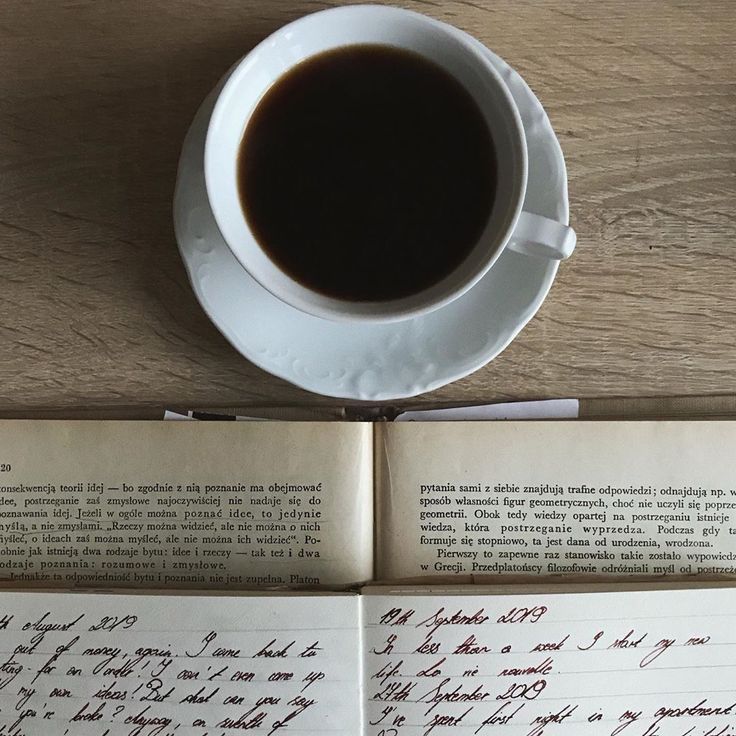 20
konsekwencją teorii idej — bo zgodnie z nią poznanie ma obejmować
idee, postrzeganie zaś zmysłowe najoczywiściej nie nadaje się do
poznawania idej. Jeżeli w ogóle można poznać idee, to jedynie
myślą, a nie zmysłami. „Rzeczy można widzieć, ale nie można o nich
myśleć, o ideach zaś można myśleć, ale nie można ich widzieć“. Po-
dobnie jak istnieją dwa rodzaje bytu: idee i rzeczy — tak też i dwa
rodzaje poznania: rozumowe i zmysłowe.
Jednakże ta odpowiedniość bytu i poznania nie jest zupełna. Platon
pytania sami z siebie znajdują trafne odpowiedzi; odnajdują np. w
sposób własności figur geometrycznych, choć nie uczyli się poprze
geometrii. Obok tedy wiedzy opartej na postrzeganiu istnieje
wiedza, która postrzeganie wyprzedza. Podczas gdy ta
formuje się stopniowo, ta jest dana od urodzenia, wrodzona.
Pierwszy to zapewne raz stanowisko takie zostało wypowiedz
w Grecji. Przedplatońscy filozofowie odróżniali myśl od postrzeże
th August 2019
out of money, again. I came back to
ting for an order! I can't even come up
my own ideas! But what can you say
you're broke? Anyway, on
19th September 2019
In less than a week I start my new
life. La vie nouvelle.
27th September 2019
I've spent first night in my apartment!